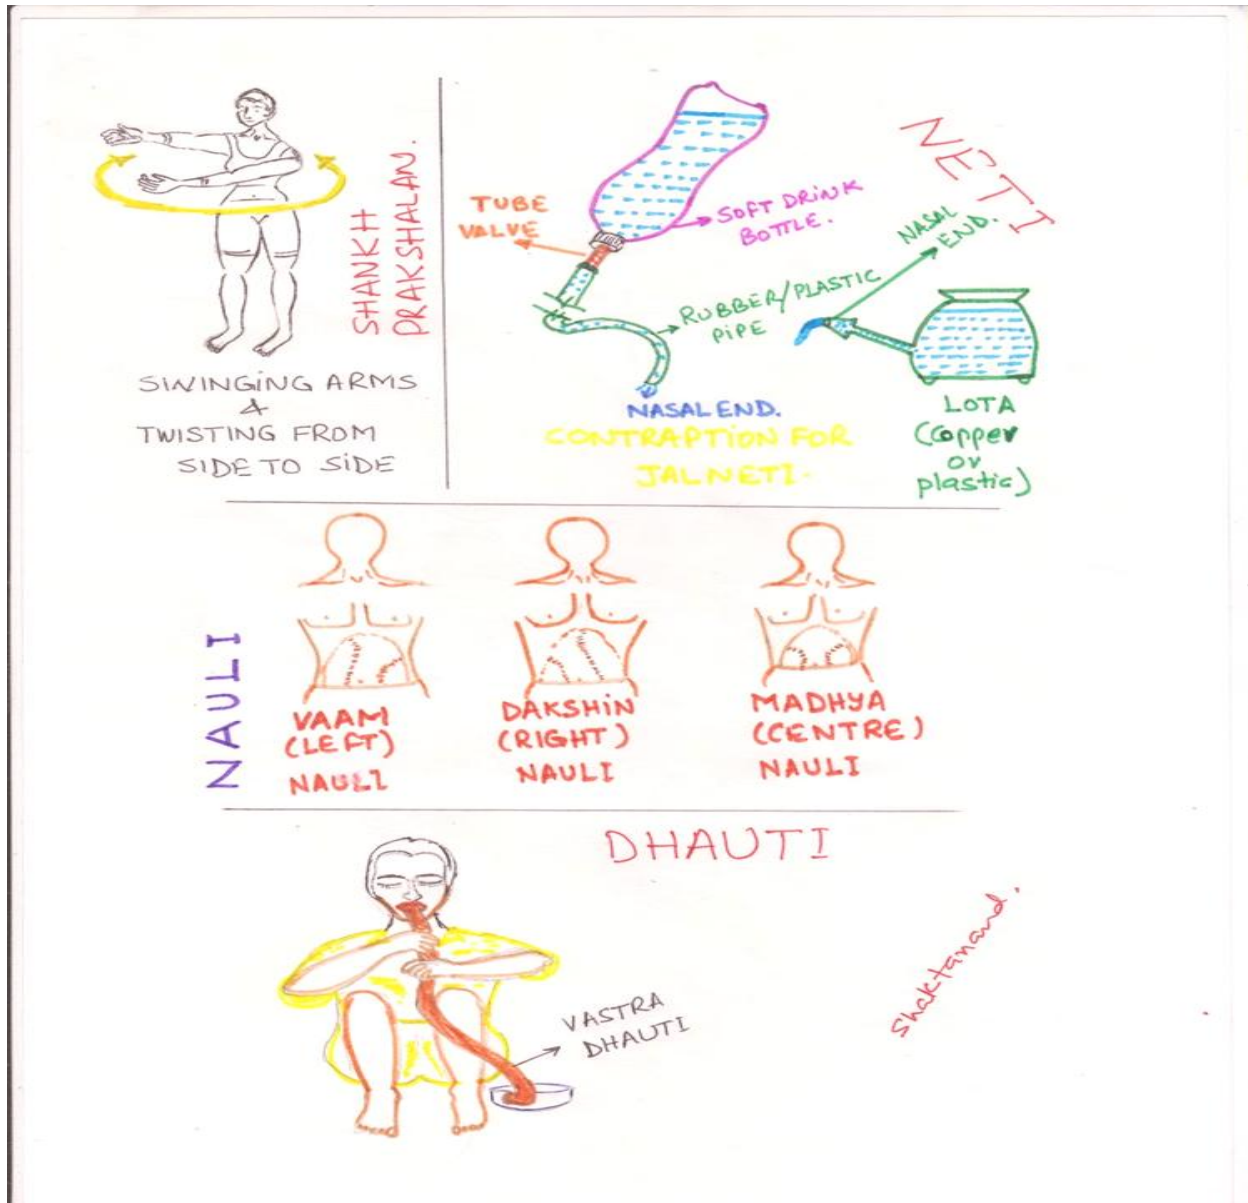 SHANKH
PRAKSHALAN.
SWINGING ARMS
&
TWISTING FROM
SIDE TO SIDE
NETI
TUBE
VALVE
SOFT DRINK
BOTTLE.
RUBBER/PLASTIC
PIPE
NASAL END.
CONTRAPTION FOR
JALNETI.
NASAL
END.
LOTA
(Copper
or
plastic)
NAULI
VAAM
(LEFT)
NAULI
DAKSHIN
(RIGHT)
NAULI
MADHYA
(CENTRE)
NAULI
DHAUTI
VASTRA
DHAUTI
Shaktanand.